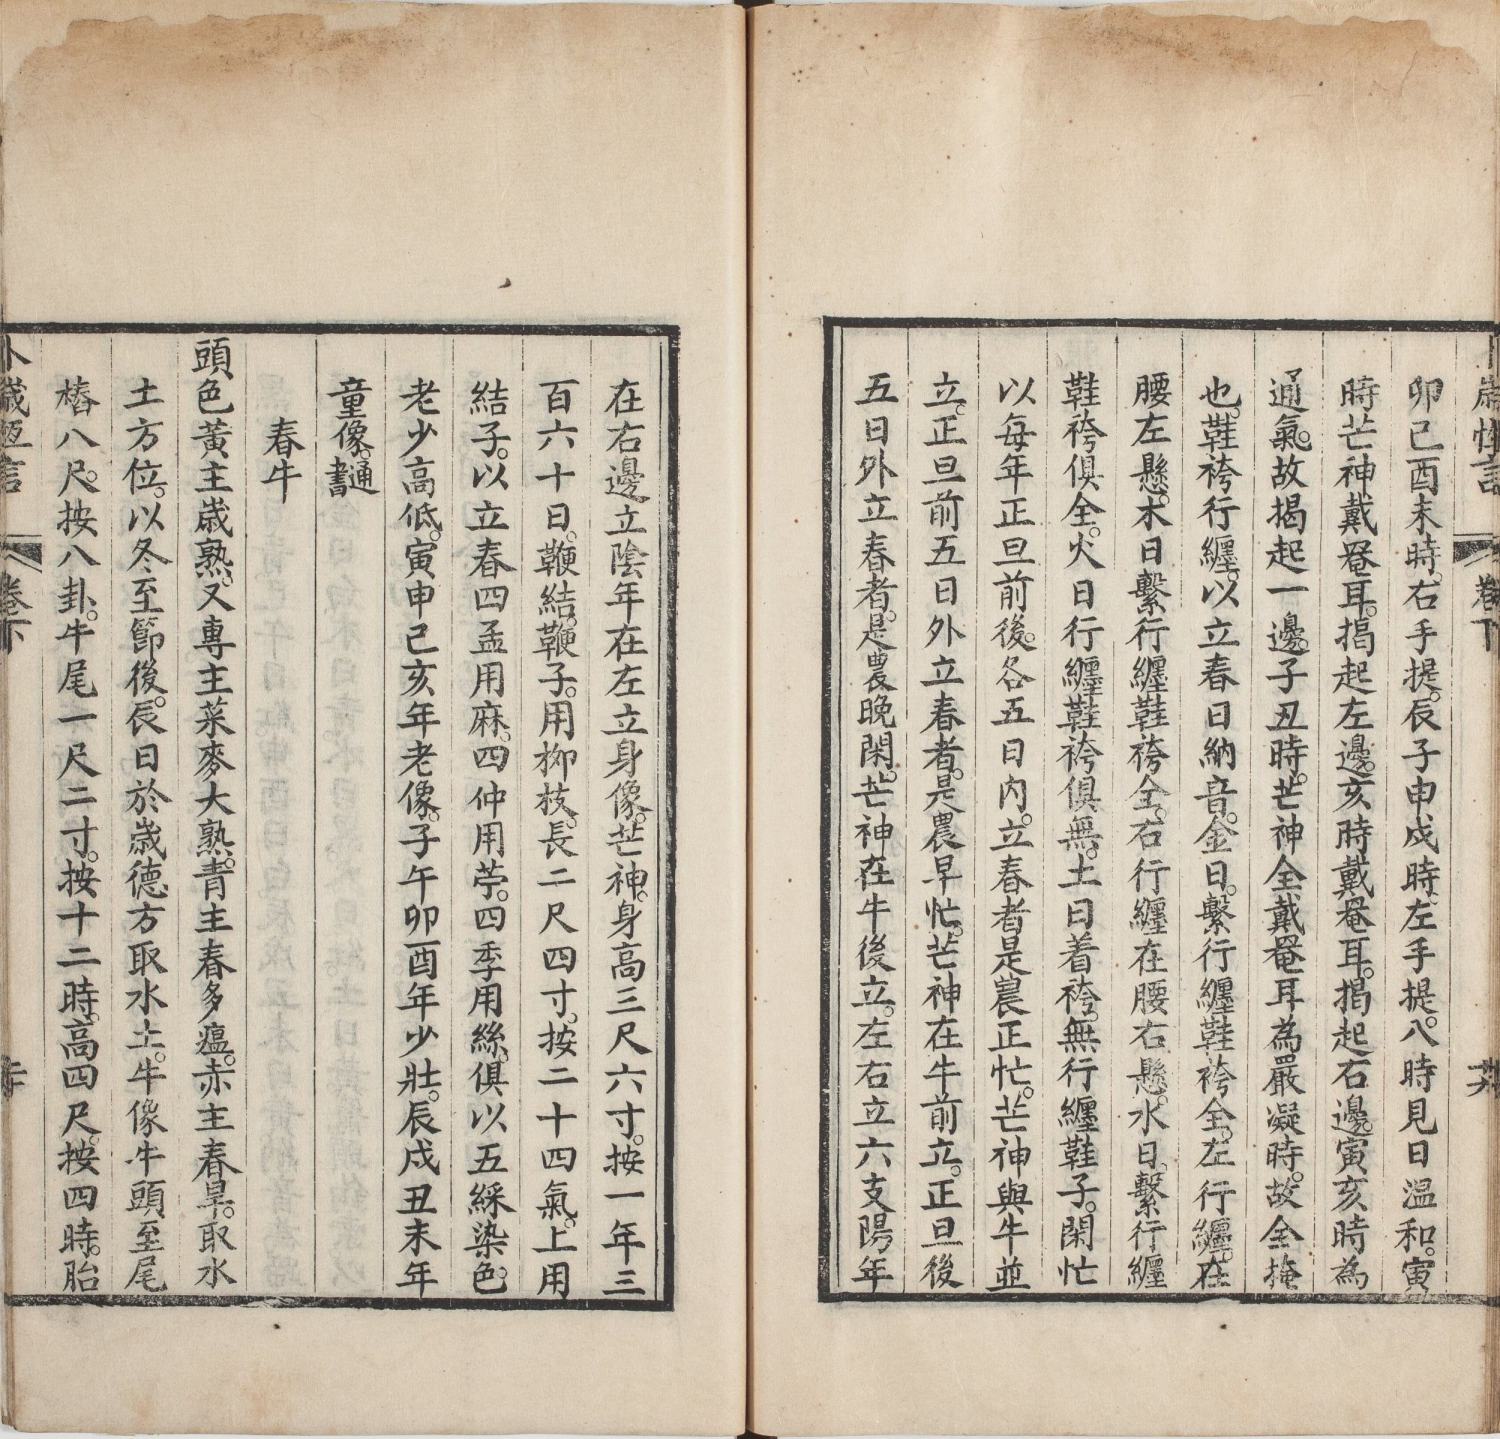 卜歲恆言 卷下
卯己酉未時。右手提。辰子申戌時。左手提。八時見日溫和。寅
時芒神戴罨耳。揭起左邊。亥時戴罨耳。揭起右邊。寅亥時為
通氣。故揭起一邊。子丑時。芒神全戴罨耳為嚴凝時。故全掩
也。鞋袴行纏。以立春日納音。金日。繫行纏鞋袴全。左行纏。在
腰左懸。木日繫行纏鞋袴全。右行纏在腰右懸。水日。繫行纏
鞋袴俱全。火日行纏鞋袴俱無。土日着袴。無行纏鞋子。閑忙
以每年正旦前後。各五日內。立春者是農正忙。芒神與牛並
立。正旦前五日外立春者。是農早忙。芒神在牛前立。正旦後
五日外立春者。是農晚閑。芒神在牛後立。左右立六支陽年
在右邊立陰年在左立身像。芒神。身高三尺六寸。按一年三
百六十日。鞭結。鞭子。用柳枝。長二尺四寸。按二十四氣。上用
結子。以立春四孟用麻。四仲用苧。四季用絲。俱以五綵染色。
老少高低。寅申己亥年老像。子午卯酉年少壯。辰戌丑未年
童像。通書
春牛
頭色黃主歲熟。又專主菜麥大熟。青主春多瘟。赤主春旱。取水
土方位。以冬至節後。辰日於歲德方取水土。牛像牛頭至尾
樁八尺。按八卦。牛尾一尺二寸。按十二時。高四尺。按四時。胎
卜歲恆言 卷下